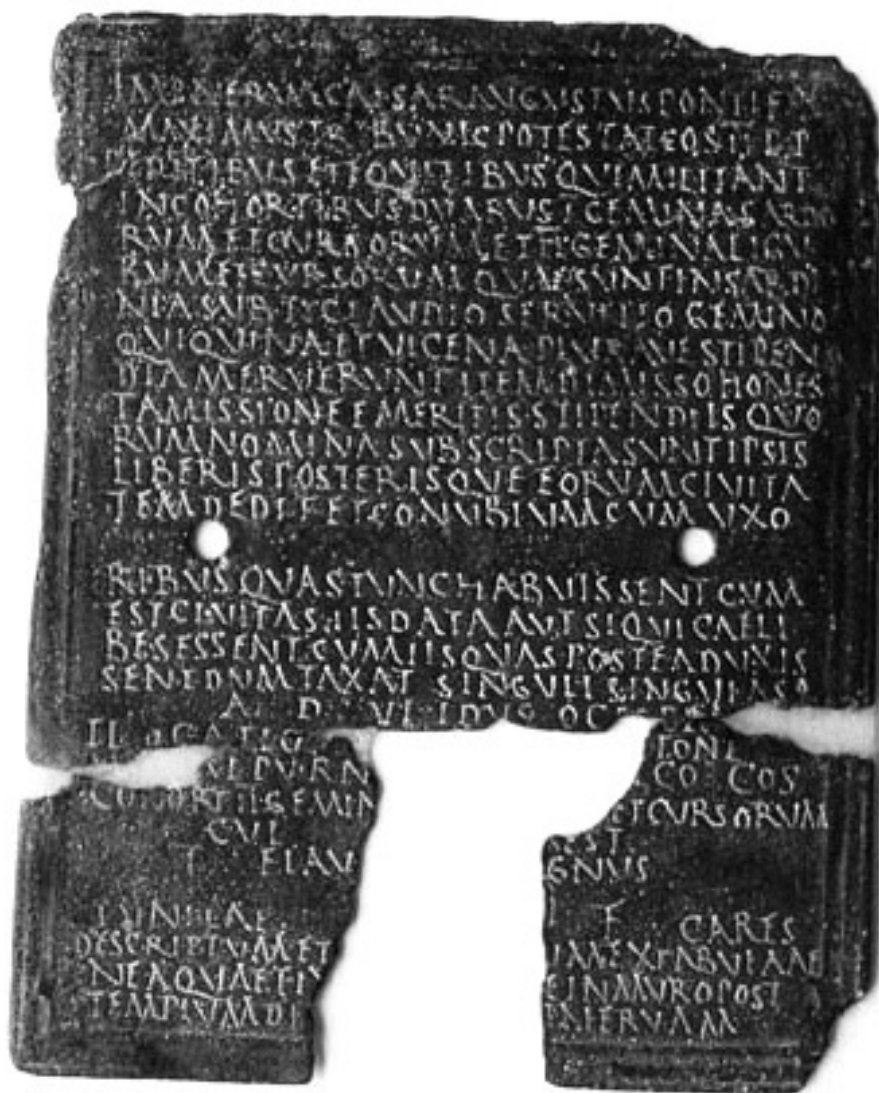 IMP NERVA CAESAR AVGVSTVS PONTIFEX
MAXIMVS TRIBVNIC POTESTATE COS II P P
PEDITIBVS ET EQVITIBVS QVI MILITANT
IN COHORTIBVS DVABVS I GEMINA SARDO
RVM ET CVRSORVM ET II GEMINA LIGV
RVM ET CVRSORVM QVAE SVNT IN SARDI
NIA SVB TI CLAVDIO SERVILIO GEMINO
QVI QVINA ET VICENA PLVRAVE STIPEN
DIA MERVERVNT ITEM DIMISSO HONES
TA MISSIONE EMERITIS STIPENDIIS QVO
RVM NOMINA SVBSCRIPTA SVNT IPSIS
LIBERIS POSTERISQVE EORVM CIVITA
TEM DEDIT ET CONVBIVM CVM VXO
RIBVS QVAS TVNC HABVISSENT CVM
EST CIVITAS IIS DATA AVT SI QVI CAELI
BES ESSENT CVM IIS QVAS POSTEA DVXIS
SENT DVMTAXAT SINGVLI SINGVLAS
A D VI IDVS OC
COS
COHORT II GEMIN ET CVRSORVM
CVI EST
FLAV GNVS
F CARES
DESCRIPTVM ET
NEA QVAE FIX IN MVRO POST
TEMPLVM DI MINERVAM